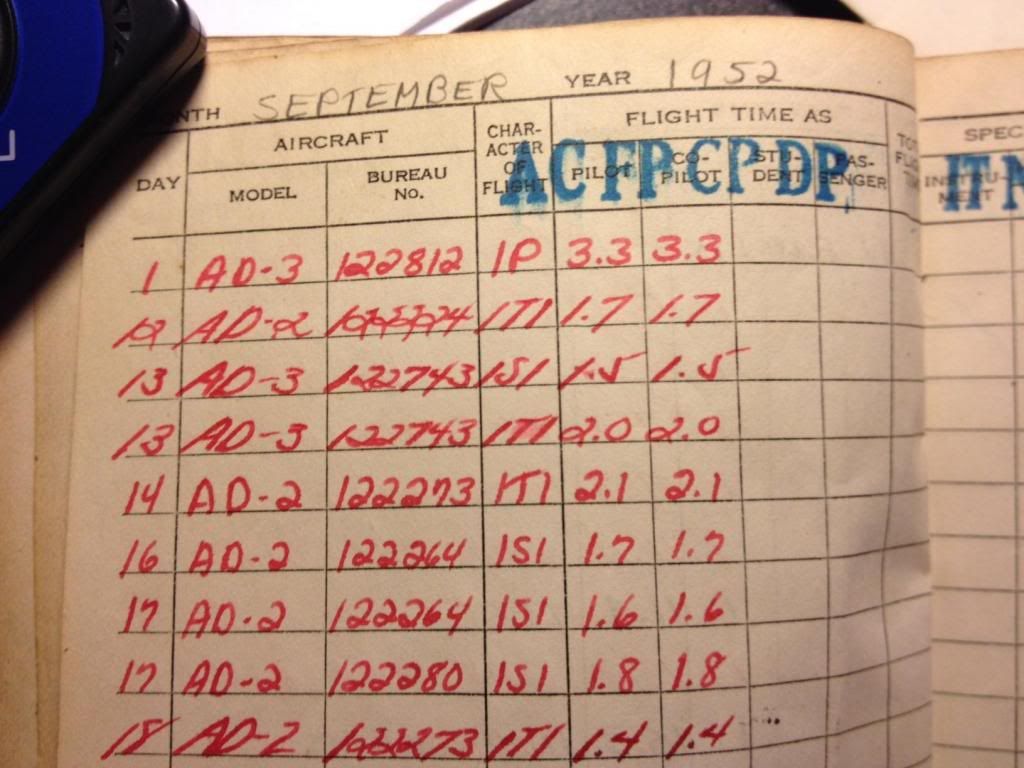 NTH SEPTEMBER YEAR 1952
AIRCRAFT CHAR- FLIGHT TIME AS
ACTER
OF
FLIGHT
DAY MODEL BUREAU PILOT CO- STU- PAS-
No. PILOT DENT SENGER
AC FP CP DP
SPEC
INSTRU-
MENT
IT
1 AD-3 122812 1P 3.3 3.3
AD-2 1T1 1.7 1.7
13 AD-3 122743 1S1 1.5 1.5
13 AD-3 122743 1T1 2.0 2.0
14 AD-2 122273 1T1 2.1 2.1
16 AD-2 122264 1S1 1.7 1.7
17 AD-2 122264 1S1 1.6 1.6
17 AD-2 122280 1S1 1.8 1.8
18 AD-2 122273 1T1 1.4 1.4